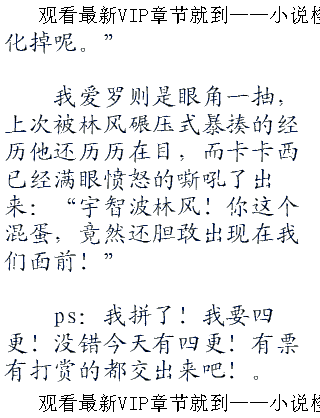 观看最新VIP章节就到——小说
化掉呢。”
我爱罗则是眼角一抽，
上次被林风碾压式暴揍的经
历他还历历在目，而卡卡西
已经满眼愤怒的嘶吼了出
来：“宇智波林风！你这个
混蛋，竟然还胆敢出现在我
们面前！”
ps：我拼了！我要四
更！没错今天有四更！有票
有打赏的都交出来吧！。
观看最新VIP章节就到——小说